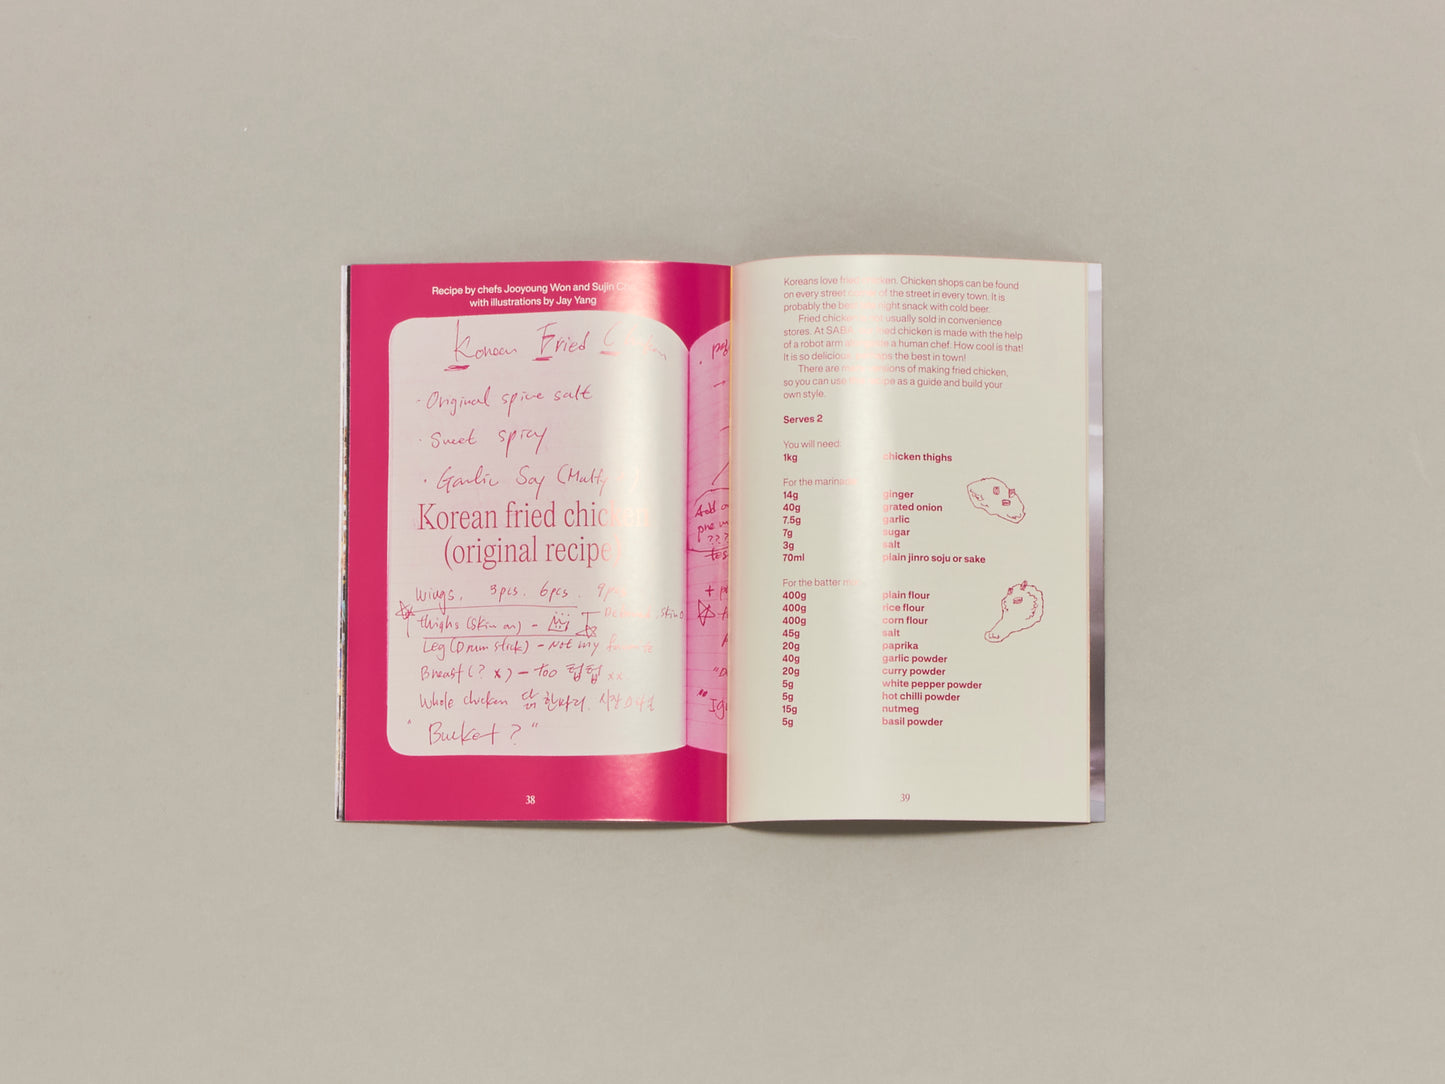 Recipe by chefs Jooyoung Won and Sujin
with illustrations by Jay Yang
Korean Fried
· Original spice salt
· Sweet spicy
· Garlic Soy
Korean fried chicken
(original recipe)
Wings. 3pcs. 6pcs. 9pcs
thighs (skin on) -
Leg (Drum stick) - Not my favorite
Breast (? x) - too 텁텁 xx
Whole chicken 닭 한마리.
"Bucket?"
38
Add
???
Koreans love fried chicken. Chicken shops can be found
on every street corner of the street in every town. It is
probably the best night snack with cold beer.
Fried chicken is not usually sold in convenience
stores. At SABA fried chicken is made with the help
of a robot arm a human chef. How cool is that!
It is so delicious, perhaps the best in town!
There are many versions of making fried chicken,
so you can use this recipe as a guide and build your
own style.
Serves 2
You will need:
1kg chicken thighs
For the marinade
14g ginger
40g grated onion
7.5g garlic
7g sugar
3g salt
70ml plain jinro soju or sake
For the batter
400g plain flour
400g rice flour
400g corn flour
45g salt
20g paprika
40g garlic powder
20g curry powder
5g white pepper powder
5g hot chilli powder
15g nutmeg
5g basil powder
39